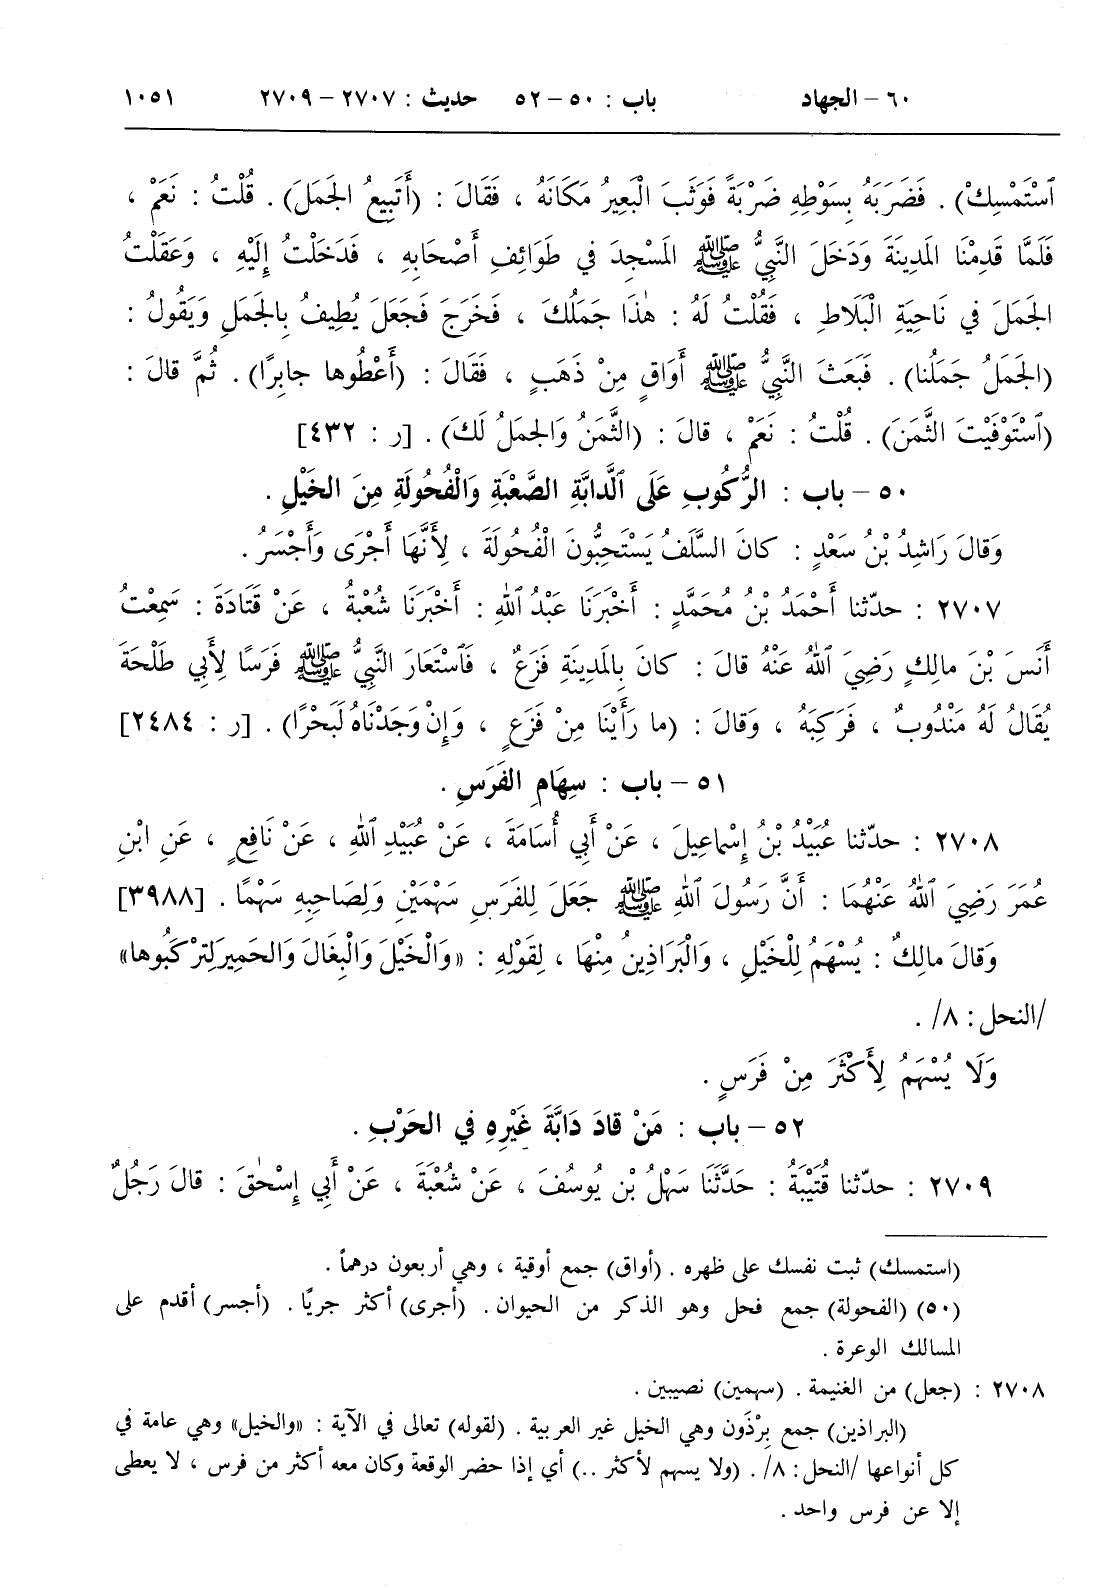 ٦٠ - الجهاد باب : ٥٠ - ٥٢ حديث : ٢٧٠٧ - ٢٧٠٩ ١٠٥١
ٱسْتَمْسِكْ) . فَضَرَبَهُ بِسَوْطِهِ ضَرْبَةً فَوَثَبَ الْبَعِيرُ مَكَانَهُ ، فَقَالَ : (أَتَبِيعُ الجَمَلَ) . قُلْتُ : نَعَمْ ،
فَلَمَّا قَدِمْنَا المَدِينَةَ وَدَخَلَ النَّبِيُّ ﷺ المَسْجِدَ في طَوَائِفِ أَصْحَابِهِ ، فَدَخَلْتُ إِلَيْهِ ، وَعَقَلْتُ
الجَمَلَ في نَاحِيَةِ الْبَلَاطِ ، فَقُلْتُ لَهُ : هٰذَا جَمَلُكَ ، فَخَرَجَ فَجَعَلَ يُطِيفُ بِالجَمَلِ وَيَقُولُ :
(الجَمَلُ جَمَلُنا) . فَبَعَثَ النَّبِيُّ ﷺ أَوَاقٍ مِنْ ذَهَبٍ ، فَقَالَ : (أَعْطُوها جابِرًا) . ثُمَّ قالَ :
(ٱسْتَوْفَيْتَ الثَّمَنَ) . قُلْتُ : نَعَمْ ، قالَ : (الثَّمَنُ وَالجَمَلُ لَكَ) . [ر : ٤٣٢]
٥٠ - باب : الرُّكُوبِ عَلَى ٱلدَّابَّةِ الصَّعْبَةِ وَالْفُحُولَةِ مِنَ الخَيْلِ .
وَقالَ رَاشِدُ بْنُ سَعْدٍ : كانَ السَّلَفُ يَسْتَحِبُّونَ الْفُحُولَةَ ، لِأَنَّهَا أَجْرَى وَأَجْسَرُ .
٢٧٠٧ : حدّثنا أَحْمَدُ بْنُ مُحَمَّدٍ : أَخْبَرَنَا عَبْدُ ٱللهِ : أَخْبَرَنَا شُعْبَةُ ، عَنْ قَتَادَةَ : سَمِعْتُ
أَنَسَ بْنَ مالِكٍ رَضِيَ ٱللهُ عَنْهُ قالَ : كانَ بِالمَدِينَةِ فَزَعٌ ، فَٱسْتَعَارَ النَّبِيُّ ﷺ فَرَسًا لِأَبِي طَلْحَةَ
يُقَالُ لَهُ مَنْدُوبٌ ، فَرَكِبَهُ ، وَقالَ : (ما رَأَيْنَا مِنْ فَزَعٍ ، وَإِنْ وَجَدْنَاهُ لَبَحْرًا) . [ر : ٢٤٨٤]
٥١ - باب : سِهَامِ الفَرَسِ .
٢٧٠٨ : حدّثنا عُبَيْدُ بْنُ إِسْماعِيلَ ، عَنْ أَبِي أُسَامَةَ ، عَنْ عُبَيْدِ ٱللهِ ، عَنْ نَافِعٍ ، عَنِ ابْنِ
عُمَرَ رَضِيَ ٱللهُ عَنْهُمَا : أَنَّ رَسُولَ ٱللهِ ﷺ جَعَلَ لِلْفَرَسِ سَهْمَيْنِ وَلِصَاحِبِهِ سَهْمًا . [٣٩٨٨]
وَقالَ مالِكٌ : يُسْهَمُ لِلْخَيْلِ ، وَالْبَرَاذِينُ مِنْهَا ، لِقَوْلِهِ : «وَالْخَيْلَ وَالْبِغَالَ وَالحَمِيرَ لِتَرْكَبُوها»
/النحل : ٨/ .
وَلَا يُسْهَمُ لِأَكْثَرَ مِنْ فَرَسٍ .
٥٢ - باب : مَنْ قادَ دَابَّةَ غَيْرِهِ في الحَرْبِ .
٢٧٠٩ : حدّثنا قُتَيْبَةُ : حَدَّثَنَا سَهْلُ بْنِ يُوسُفَ ، عَنْ شُعْبَةَ ، عَنْ أَبِي إِسْحٰقَ : قالَ رَجُلٌ
(استمسك) ثبت نفسك على ظهره . (أواق) جمع أوقية ، وهي أربعون درهماً .
(٥٠) (الفحولة) جمع فحل وهو الذكر من الحيوان . (أجرى) أكثر جريًا . (أجسر) أقدم على
المسالك الوعرة .
٢٧٠٨ : (جعل) من الغنيمة . (سهمين) نصيبين .
(البراذين) جمع بِرْذَون وهي الخيل غير العربية . (لقوله) تعالى في الآية : «والخيل» وهي عامة في
كل أنواعها /النحل : ٨/ . (ولا يسهم لأكثر ..) أي إذا حضر الوقعة وكان معه أكثر من فرس ، لا يعطى
إلا عن فرس واحد .